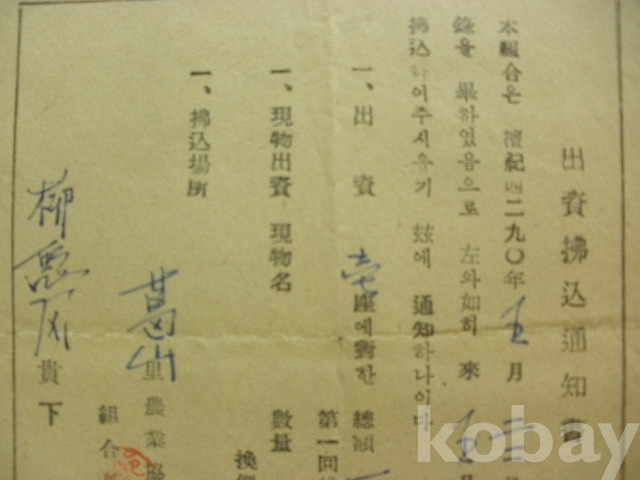 出資拂込通知書
本組合은 檀紀四二九〇年 五 月
錄을 畢하였음으로 左와如히 來 五 月
拂込하여주시옵기 玆에 通知하나이다
一、出資 壱 座에對한 總額
第一回
一、現物出資、現物名 數量
換價
一、拂込場所
葛山 里農業協
組合
柳 貴下
kobay